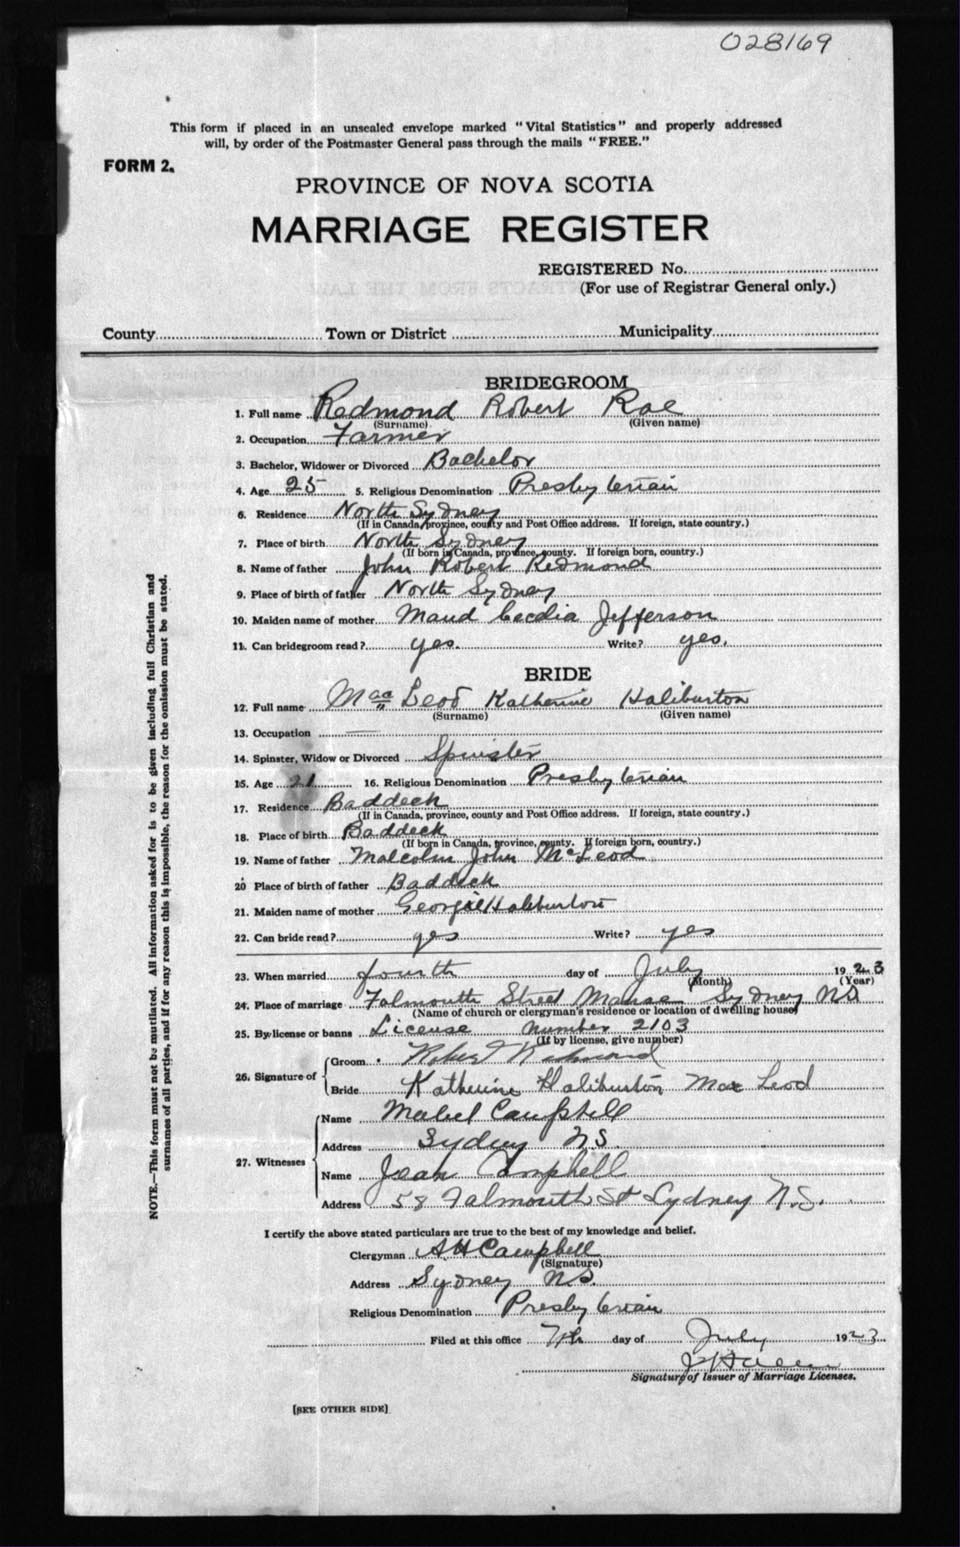 028169
This form if placed in an unsealed envelope marked "Vital Statistics" and properly addressed
will, by order of the Postmaster General pass through the mails "FREE."
FORM 2.
PROVINCE OF NOVA SCOTIA
MARRIAGE REGISTER
REGISTERED No.
(For use of Registrar General only.)
County Town or District Municipality
BRIDEGROOM
1. Full name Redmond Robert Rae
(Surname) (Given name)
2. Occupation Farmer
3. Bachelor, Widower or Divorced Bachelor
4. Age 25 5. Religious Denomination Presbyterian
6. Residence North Sydney
(If in Canada, province, county and Post Office address. If foreign, state country.)
7. Place of birth North Sydney
(If born in Canada, province, county. If foreign born, country.)
8. Name of father John Robert Redmond
9. Place of birth of father North Sydney
10. Maiden name of mother Maud Cecelia Jefferson
11. Can bridegroom read? yes. Write? yes.
BRIDE
12. Full name MacLeod Katherine Haliburton
(Surname) (Given name)
13. Occupation —
14. Spinster, Widow or Divorced Spinster
15. Age 21 16. Religious Denomination Presbyterian
17. Residence Baddeck
(If in Canada, province, county and Post Office address. If foreign, state country.)
18. Place of birth Baddeck
(If born in Canada, province, county. If foreign born, country.)
19. Name of father Malcolm John McLeod
20 Place of birth of father Baddeck
21. Maiden name of mother Georgie Haliburton
22. Can bride read? yes Write? yes
23. When married fourth day of July 1923
(Month) (Year)
24. Place of marriage Falmouth Street Manse Sydney NS
(Name of church or clergyman's residence or location of dwelling house)
25. By license or banns License number 2103
(If by license, give number)
26. Signature of Groom Robert Redmond
Bride Katherine Haliburton MacLeod
27. Witnesses Name Mabel Campbell
Address Sydney N.S.
Name Jean Campbell
Address 58 Falmouth St Sydney N.S.
I certify the above stated particulars are true to the best of my knowledge and belief.
Clergyman A H Campbell
(Signature)
Address Sydney NS.
Religious Denomination Presbyterian
Filed at this office 7th day of July 1923
Signature of Issuer of Marriage Licenses.
[SEE OTHER SIDE]
NOTE.—This form must not be mutilated. All information asked for is to be given including full Christian and
surnames of all parties, and if for any reason this is impossible, the reason for the omission must be stated.